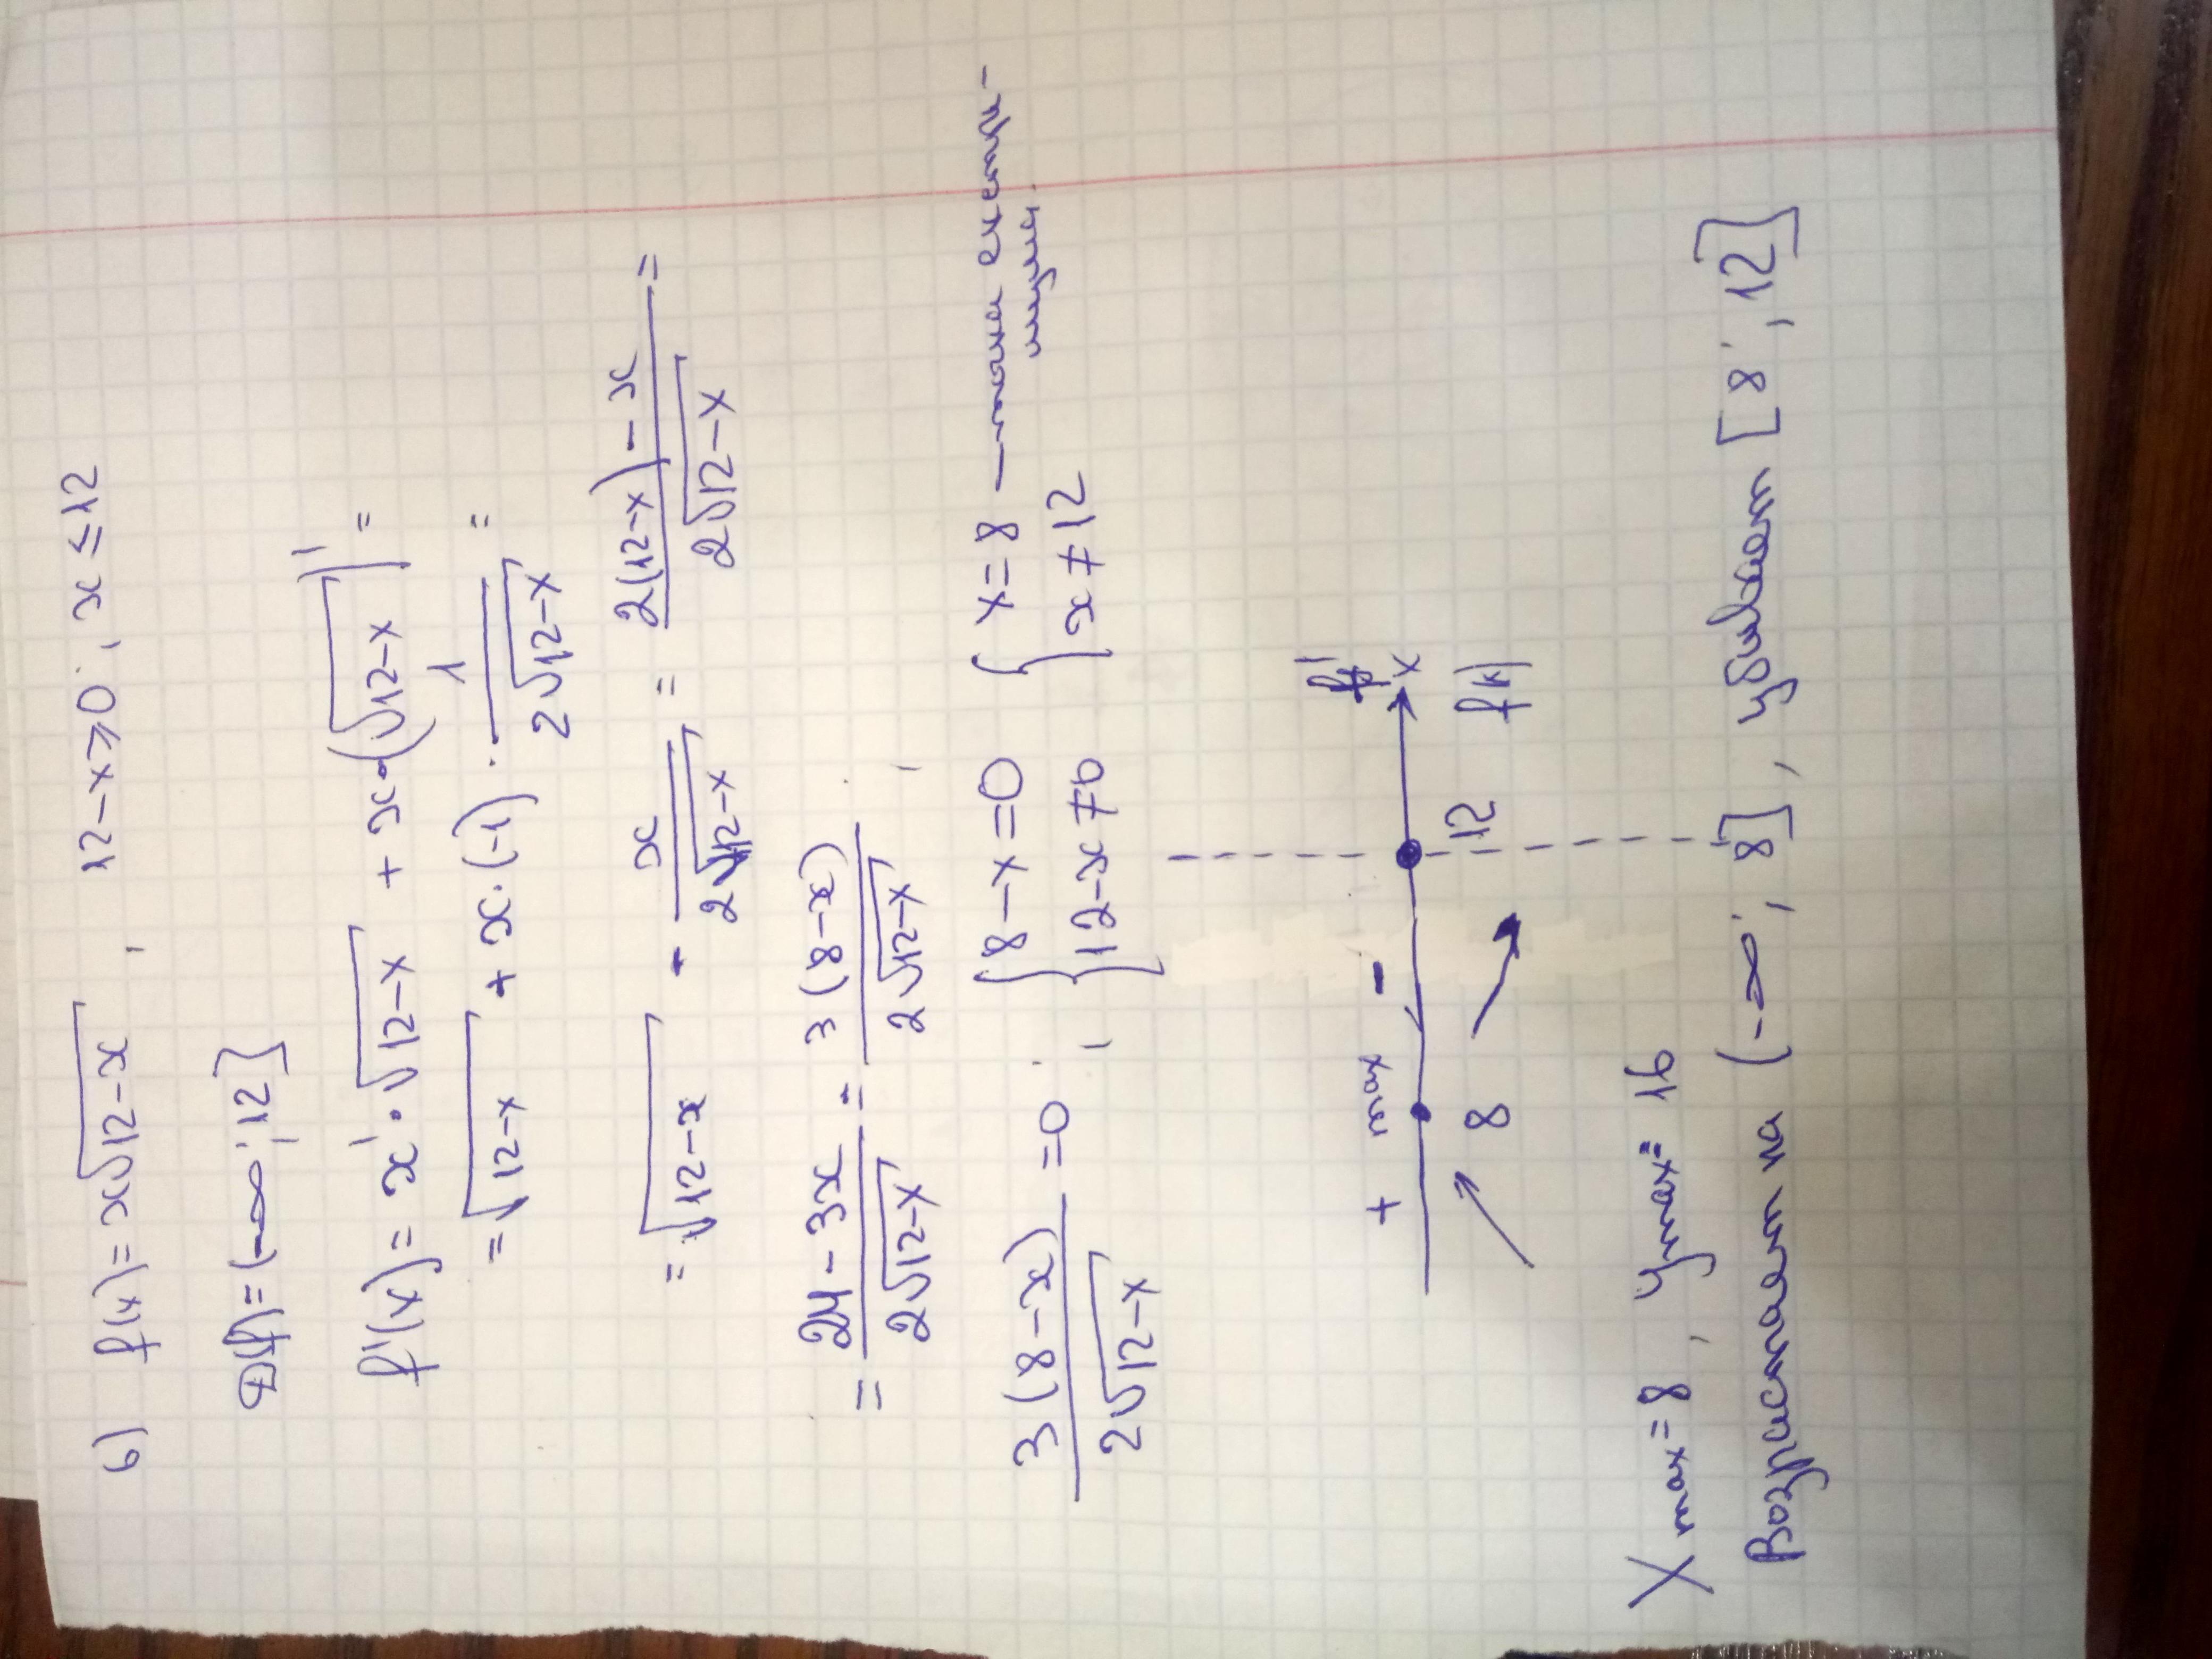 6) f(x) = x√12-x , 12-x ≥ 0 ; x ≤ 12
D(f) = (-∞; 12]
f'(x) = x' · √12-x + x · (√12-x)' =
= √12-x + x · (-1) · 1/2√12-x =
= √12-x - x/2√12-x = 2(12-x) - x/2√12-x =
= 24 - 3x/2√12-x = 3(8-x)/2√12-x ;
3(8-x)/2√12-x = 0 ; { 8-x = 0 { x = 8 — точка экстре-
мума
12-x ≠ 0 x ≠ 12
+ max - f'
x
8 12 f(x)
X max = 8 , Ymax = 16
Возрастает на (-∞; 8], убывает [8; 12]